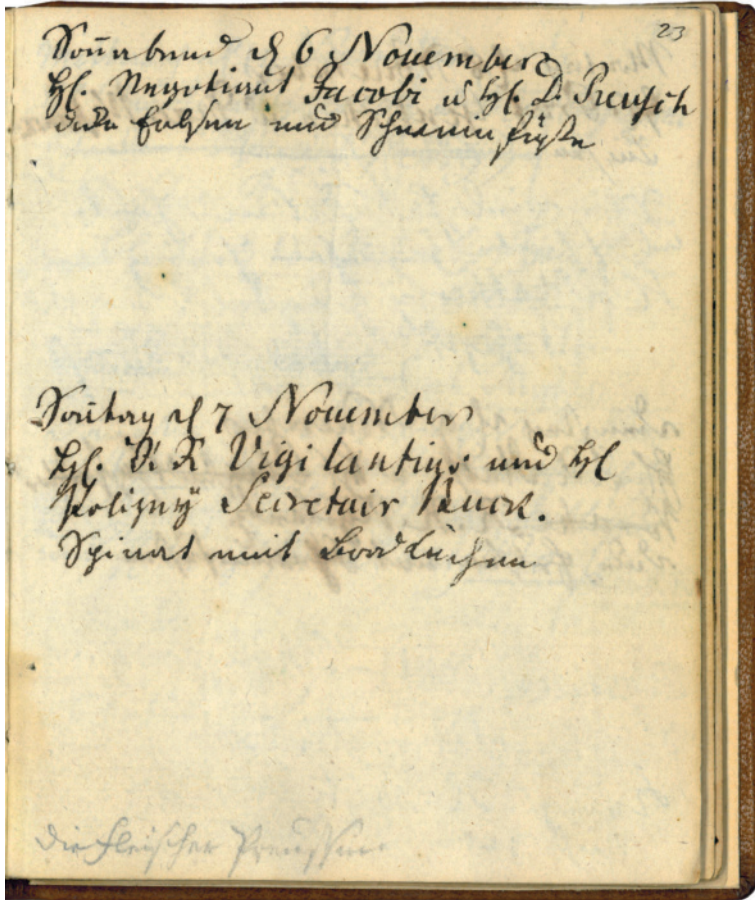 23
Sonnabend d 6 November
HE. Negotiant Jacobi u HE. D. Reusch
dicke Erbsen und Schweins füße
Sontag d 7 November
HE. C. R. Vigilantius und HE
Polizey Secretair Buck.
Spinat mit
die Fleischer